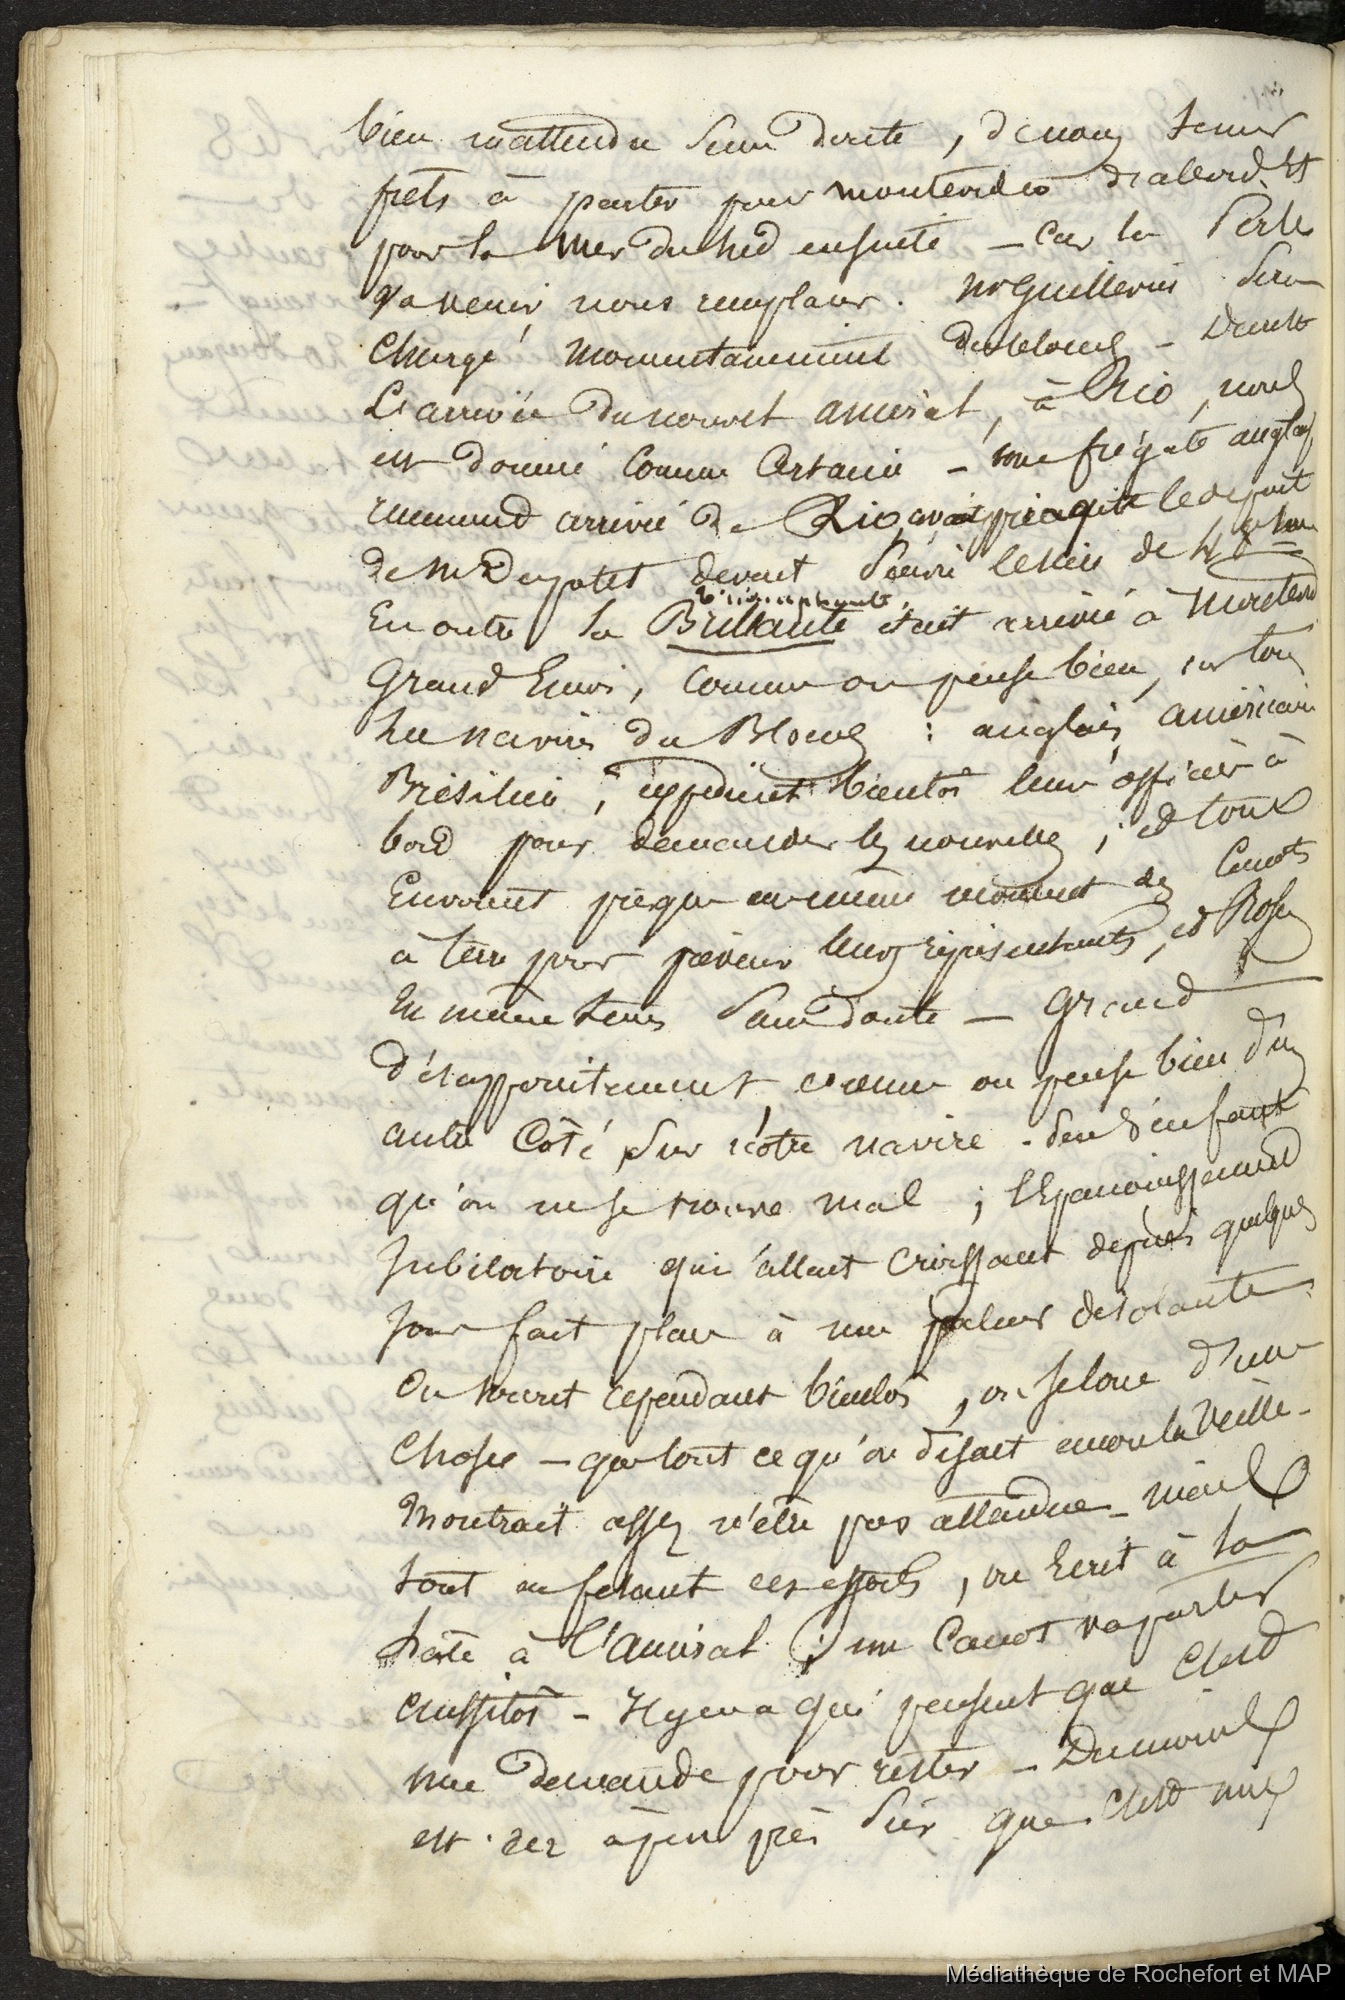 bien inattendu sans doute, de nous tenir
prêts à partir pour montevideo d'abord et
pour la mer du sud ensuite - car la Perle
va venir nous remplacer. Mr Guillevin sera
Chargé momentanement du blocus -
L'arrivée du nouvel amiral, à Rio, nous
est donné comme Certaine - une frégate anglaise
récemment arrivé de Rio, le départ
de Mr Dupotet devant suivre le sien de 48
En outre la Brillante était arrivée à Montevideo
Grand Emoi, comme on pense bien, sur tous
les navires du Blocus : anglais, américain
Brésilien, expédient bientôt leur officier à
bord pour demander les nouvelles ; et tous
Envoient presque au même moment des Canots
à terre pour prévenir leurs représentants, et Rosas
En même tems sans doute - Grand
désappointement comme on pense bien d'un
autre Côté sur nôtre navire. peu s'en faut
qu'on ne se trouve mal ; l'Epanouissement
Jubilatoire qui allait croissant depuis quelques
jours fait place à une paleur désolante.
On sourit cependant bientôt, on se loue d'une
Chose - que tout ce qu'on disait encore la Veille -
Montrait assez n'être pas attendue - mais
tout en fesant ces efforts, on Ecrit à la
hâte à l'amiral ; un Canot va partir
aussitôt - Il y en a qui pensent que C'est
une demande pour rester - Du moins
est-il à peu près sûr que C'est une
Médiathèque de Rochefort et MAP